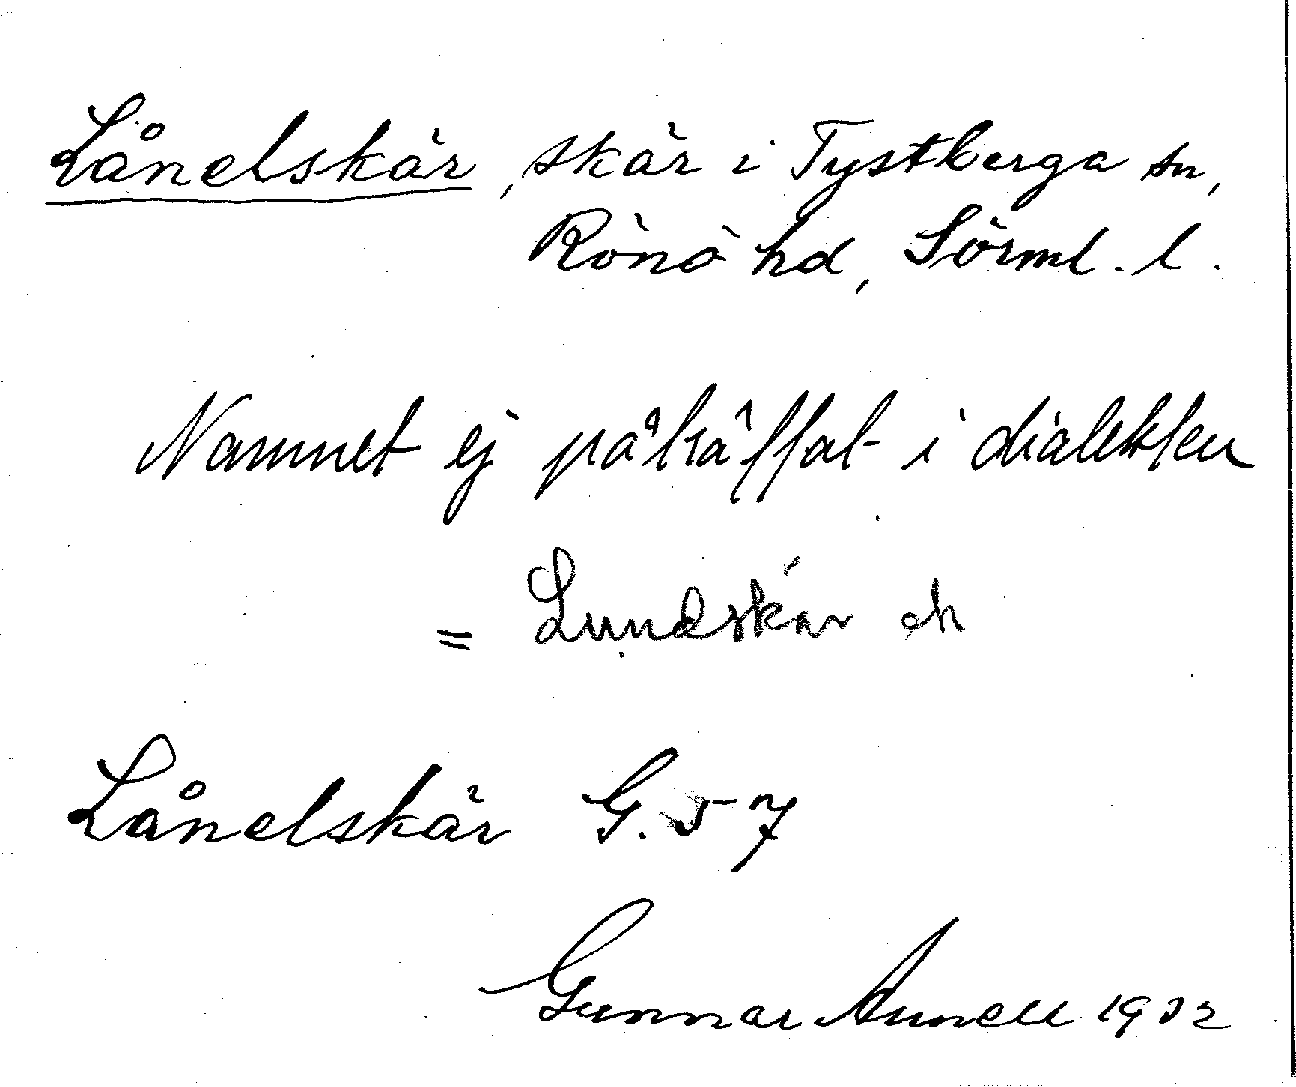 Lånelskär, skär i Tystberga sn,
Rönö hd, Sörml. l.
Namnet ej påträffat i dialekten
= Lundskär ek
Lånelskär G. 57
Gunnar Annell 1932